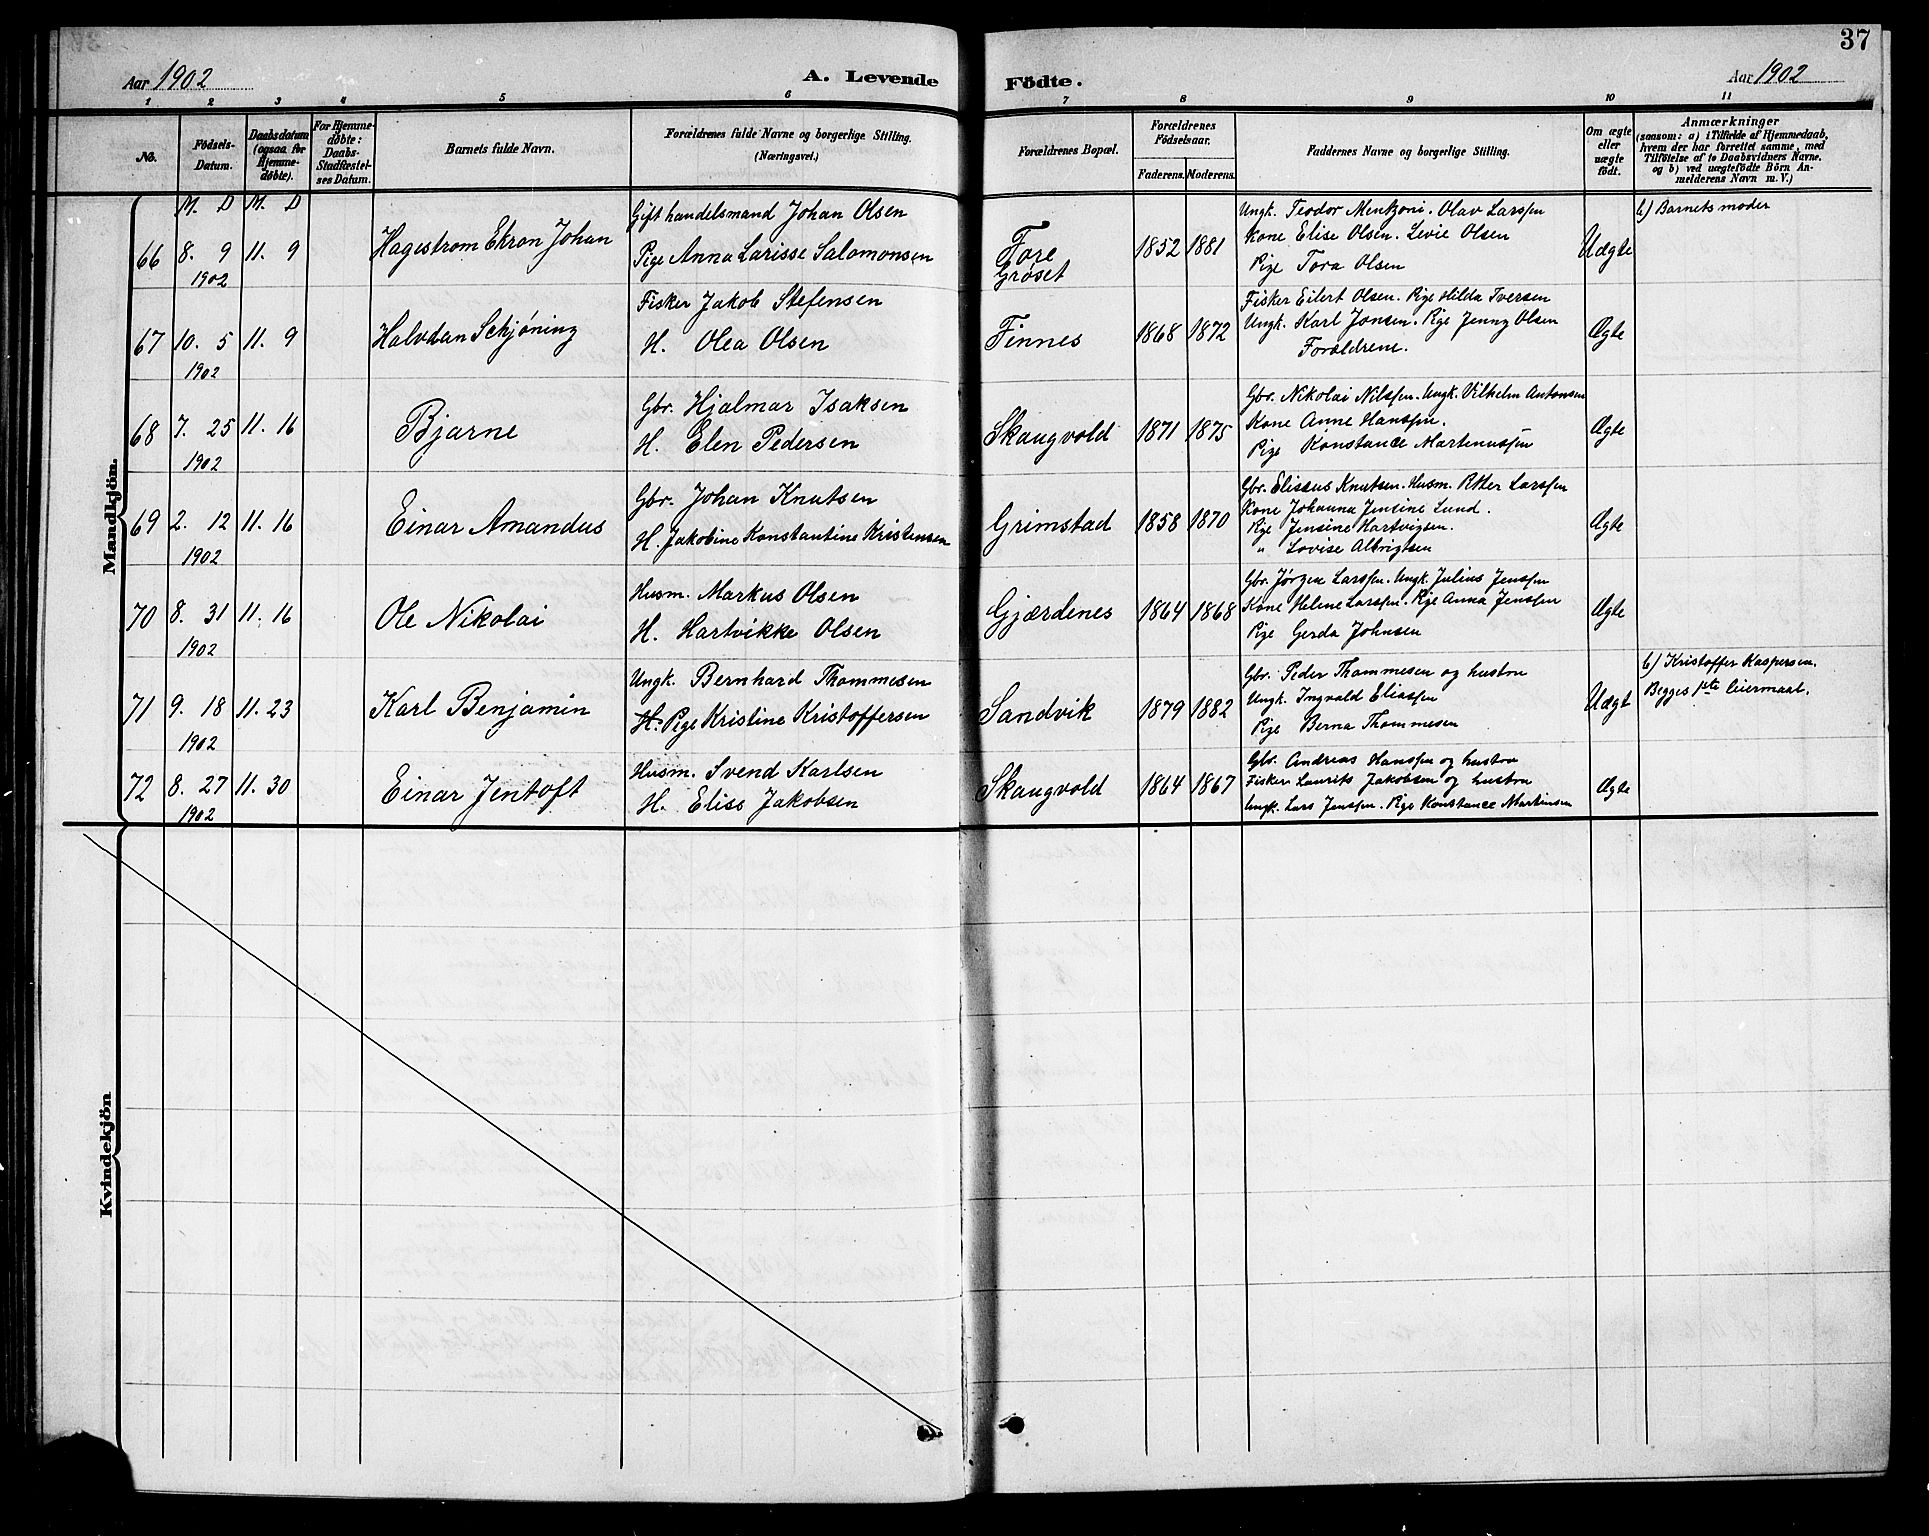 37
Aar 1902
A. Levende
Födte.
Aar 1902
1 2 3 4 5 6 7 8 9 10 11
No.
Födsels-
Datum.
Daabsdatum
(ogsaa for
Hjemme-
döbte).
For Hjemme-
döbte:
Daabs-
Stadfæstel-
ses Datum.
Barnets fulde Navn.
Forældrenes fulde Navne og borgerlige Stilling.
(Næringsvei.)
Forældrenes Bopæl.
Forældrenes
Födselsaar.
Faderens. Moderens.
Faddernes Navne og borgerlige Stilling.
Om ægte
eller
uægte
födt.
Anmærkninger
(saasom: a) i Tilfælde af Hjemmedaab,
hvem der har forrettet samme, med
Tilföielse af to Daabsvidners Navne,
og b) ved uægtefödte Börn An-
melderens Navn m. V.)
Mandkjön.
M. D M. D
66 8. 9 11. 9
1902
Hagestrom Ekron Johan
Gift handelsmand Johan Olsen
Pige Anna Larisse Salomonsen
Fore
Grøset
1852 1881
Ungk. Teodor Mentzoni. Olav Larssen
Kone Elise Olsen. Levie Olsen
Pige Tora Olsen
Uægte
b) Barnets moder
67 10. 5 11. 9
1902
Halvdan Schjøning
Fisker Jakob Stefensen
H. Olea Olsen
Finnes
1868 1872
Fisker Eilert Olsen. Pige Hilda Iversen
Ungk. Karl Jonsen. Pige Jenny Olsen
Forældrene.
Ægte
68 7. 25 11. 16
1902
Bjarne
Gbr. Hjalmar Isaksen
H. Elen Pedersen
Skaugvold
1871 1875
Gbr. Nikolai Nilssen. Ungk. Vilhelm Antonsen
Kone Anne Hanssen.
Pige Konstance Martinussen
Ægte
69 2. 12 11. 16
1902
Einar Amandus
Gbr. Johan Knutsen
H. Jakobine Konstantine Kristensen
Grimstad
1858 1870
Gbr. Elisæus Knutsen. Husm. Petter Larssen
Kone Johanna Jensine Lund.
Pige Jensine Hartvigsen.
" Lovise Albrigtsen
Ægte
70 8. 31 11. 16
1902
Ole Nikolai
Husm. Markus Olsen
H. Hartvikke Olsen
Gjærdenes
1864 1868
Gbr. Jørgen Larssen. Ungk. Julius Jenssen
Kone Helene Larssen. Pige Anna Jenssen
Pige Gerda Johnsen
Ægte
71 9. 18 11. 23
1902
Karl Benjamin
Ungk. Bernhard Thommesen
H. Pige Kristine Kristoffersen
Sandvik
1879 1882
Gbr. Peder Thommesen og hustru
Ungk. Ingvald Eliassen
Pige Berna Thommesen
Uægt
b) Kristoffer Kaspersen.
Begges 1ste leiermaal.
72 8. 27 11. 30
1902
Einar Jentoft
Husm. Svend Karlsen
H. Elise Jakobsen
Skaugvold
1864 1867
Gbr. Andreas Hanssen og hustru
Fisker Laurits Jakobsen og hustru
Ungk. Lars Jenssen. Pige Konstance Martinsen
Ægte
Kvindekjön